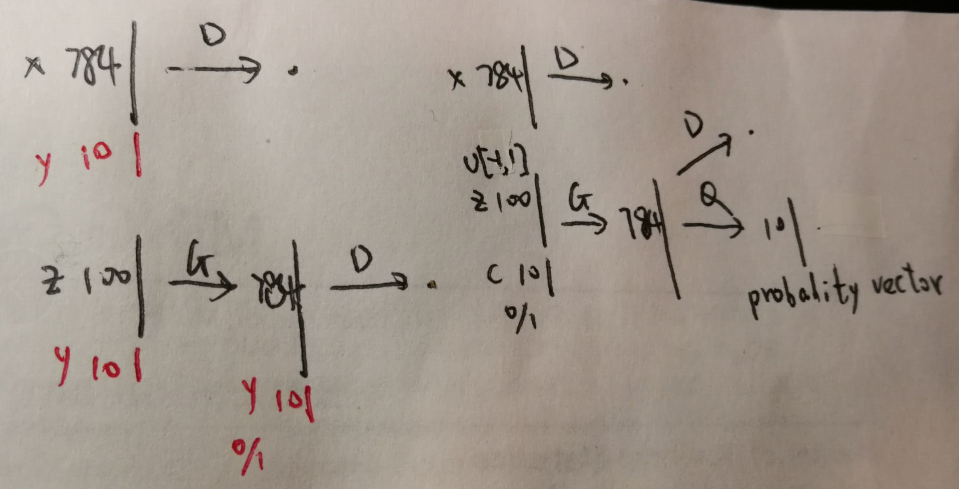 x 784 D .
y 10
z 100 G 784 D .
y 10
y 10
0/1
x 784 D .
U[-1,1]
D .
z 100 G 784 Q 10 .
c 10
0/1
probality vector